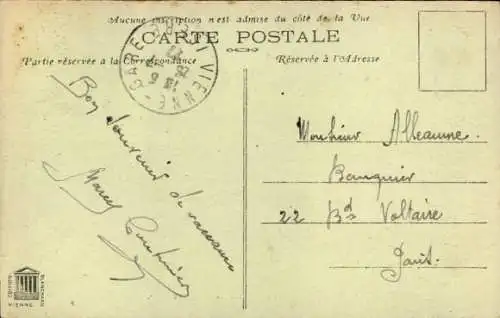 Aucune inscription n'est admise du côté de la Vue
CARTE POSTALE
Partie réservée a la Correspondance
Réservée à l'Adresse
GARE VIENNE
Bon Souvenir de
Marcel
Monsieur Alleaume.
Banquier
22 Bd Voltaire
Paris.
VIENNE